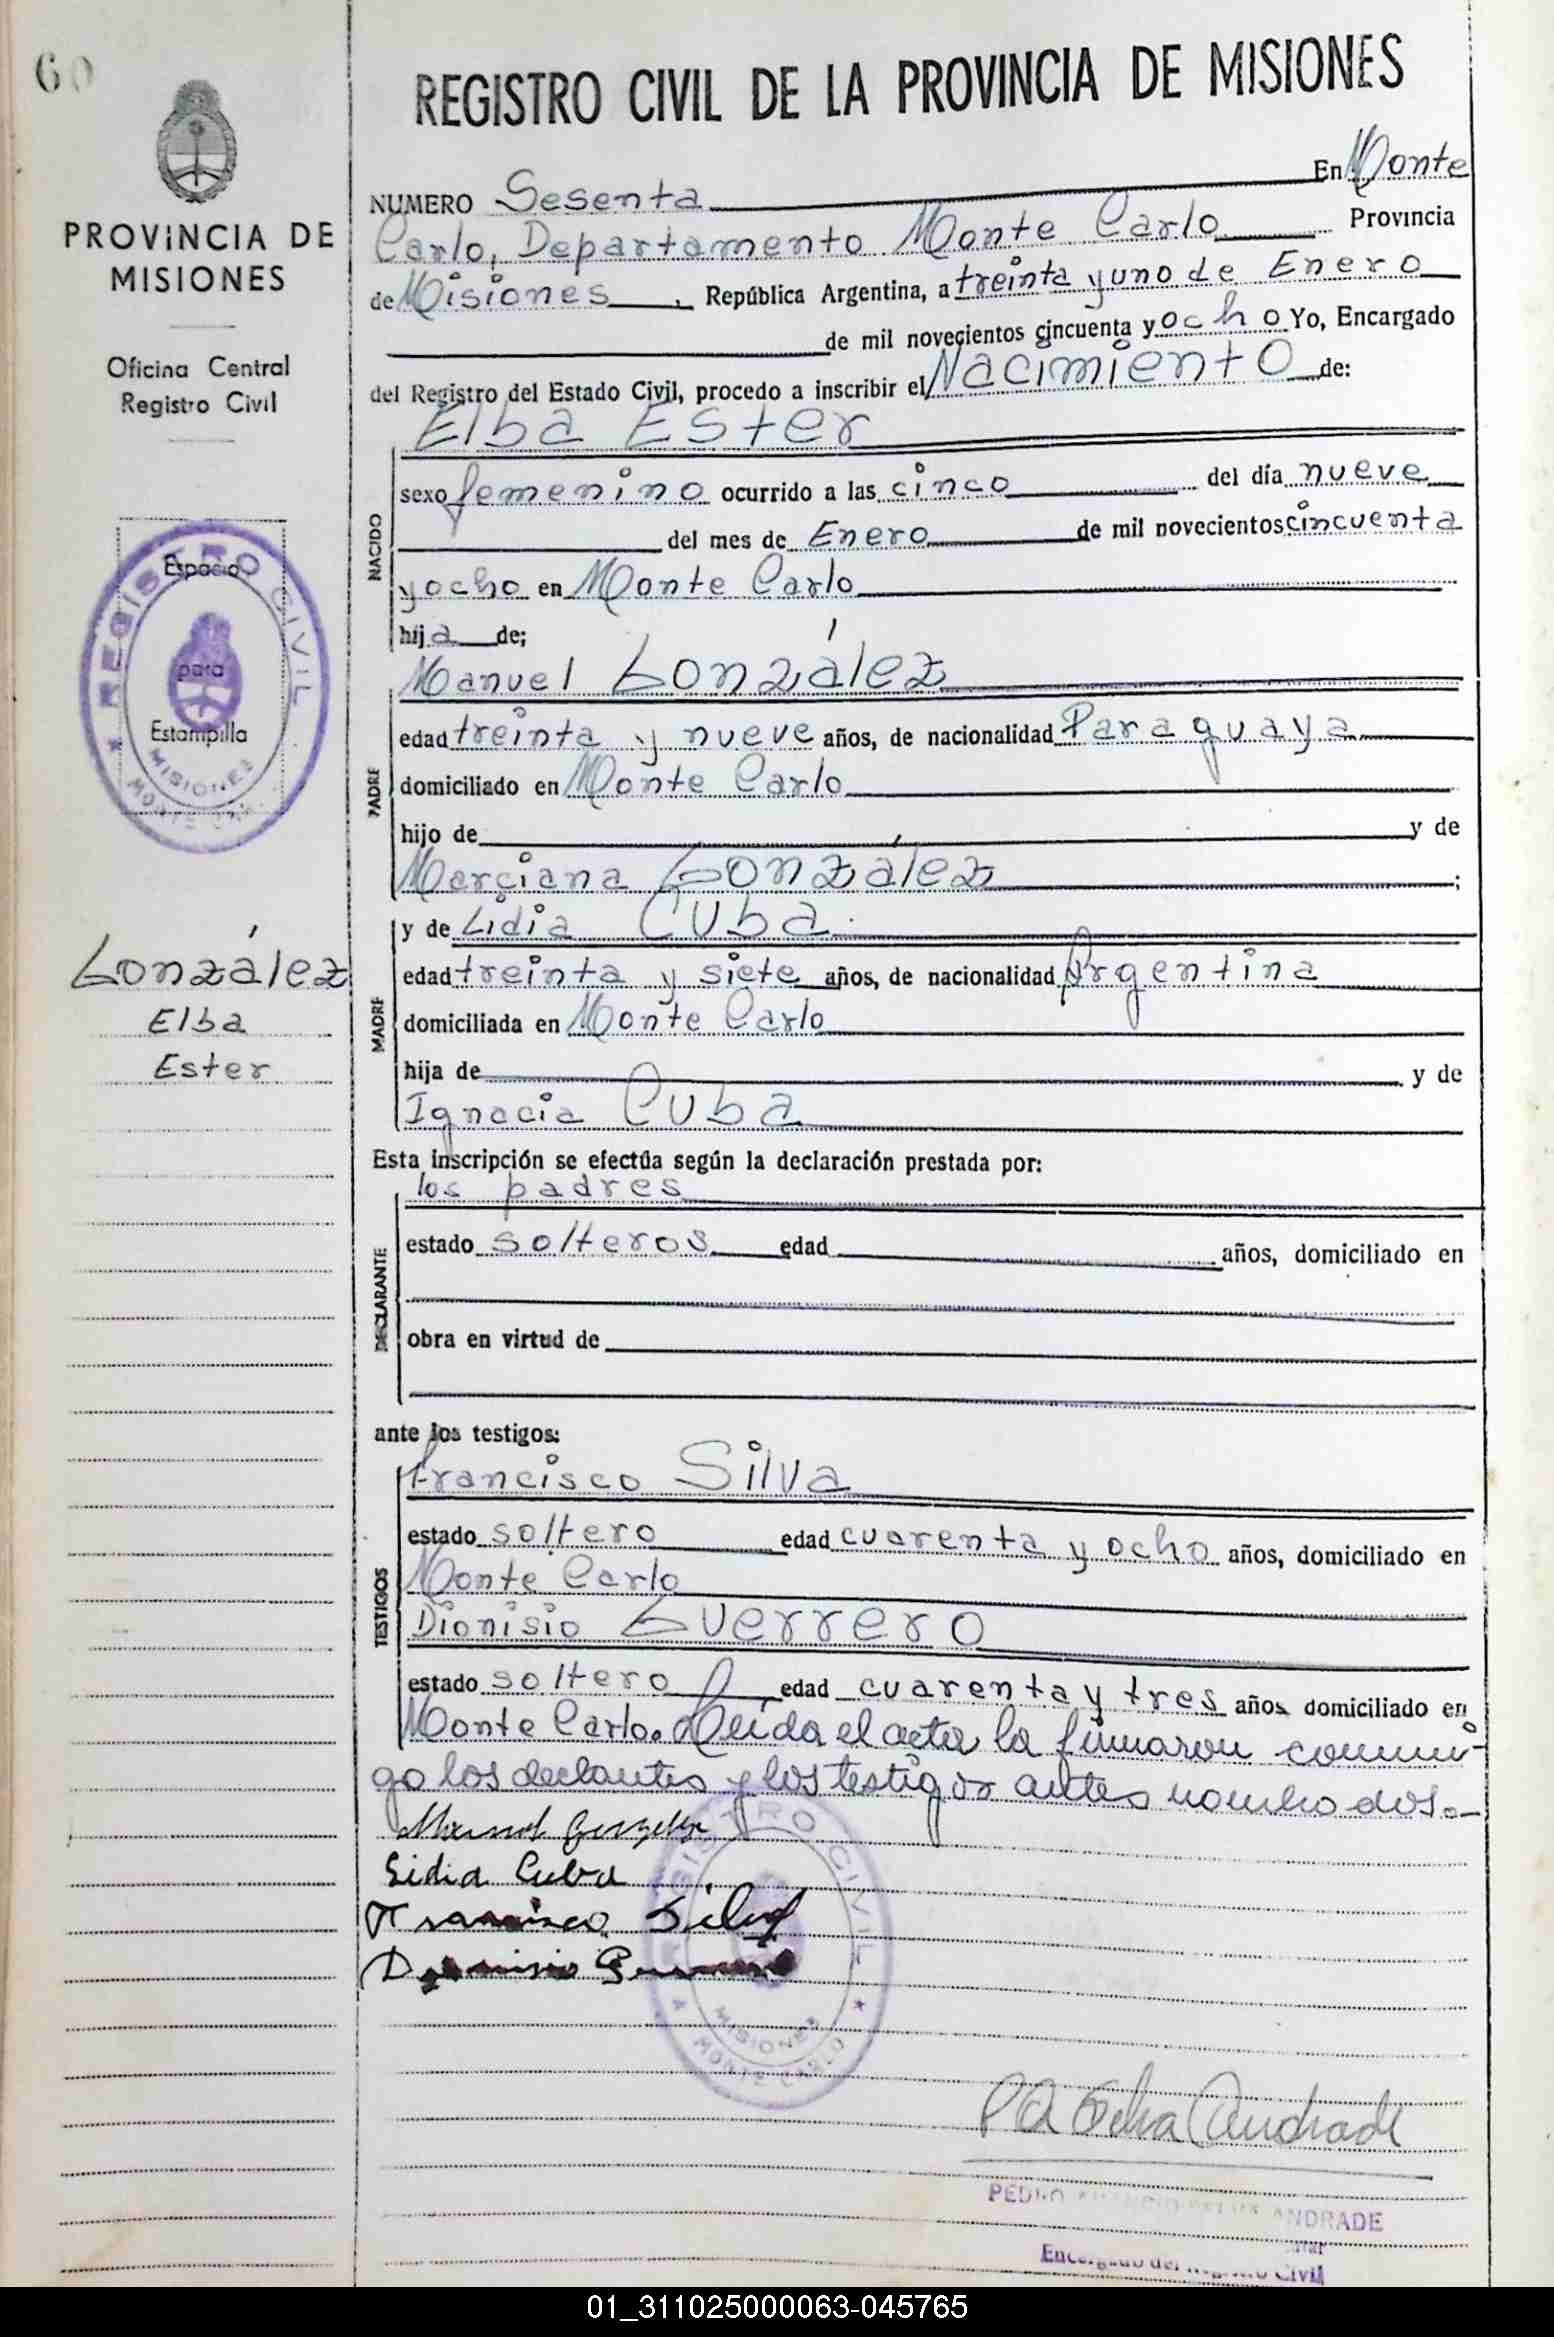 60
PROVINCIA DE
MISIONES
Oficina Central
Registro Civil
REGISTRO CIVIL
Espacio
para
Estampilla
MISIONES
MONTE CAR
González
Elba
Ester
REGISTRO CIVIL DE LA PROVINCIA DE MISIONES
NUMERO Sesenta En Monte
Carlo, Departamento Monte Carlo Provincia
de Misiones, República Argentina, a treinta y uno de Enero
de mil novecientos cincuenta y ocho Yo, Encargado
del Registro del Estado Civil, procedo a inscribir el Nacimiento de:
Elba Ester
NACIDO
sexo femenino ocurrido a las cinco del día nueve
del mes de Enero de mil novecientos cincuenta
y ocho en Monte Carlo
hija de;
Manuel González
PADRE
edad treinta y nueve años, de nacionalidad Paraguaya
domiciliado en Monte Carlo
hijo de y de
Marciana González ;
MADRE
y de Lidia Cuba
edad treinta y siete años, de nacionalidad Argentina
domiciliada en Monte Carlo
hija de y de
Ignacia Cuba
Esta inscripción se efectúa según la declaración prestada por:
los padres
DECLARANTE
estado solteros edad años, domiciliado en
obra en virtud de
ante los testigos:
Francisco Silva
TESTIGOS
estado soltero edad cuarenta y ocho años, domiciliado en
Monte Carlo
Dionisio Guerrero
estado soltero edad cuarenta y tres años, domiciliado en
Monte Carlo. Leída el acta, la firmaron conmi-
go los declantes y los testigos antes nombrados.-
Manuel González
Lidia Cuba
Francisco Silva
Dionisio
REGISTRO CIVIL
MISIONES
MONTE CARLO
Andrade
PEDRO ANDRADE
Encargado del Registro Civil
01_311025000063-045765